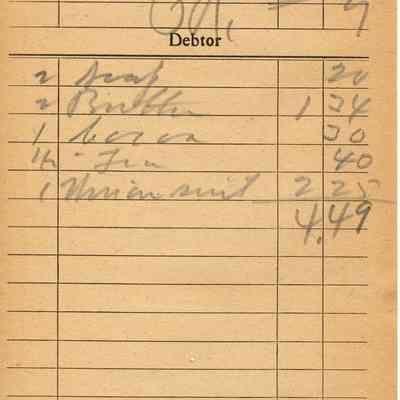 Debtor
2 Soap 20
2 Butter 1 34
1 Cocoa 30
1/2 Tea 40
1 Union suit 2 25
4.49